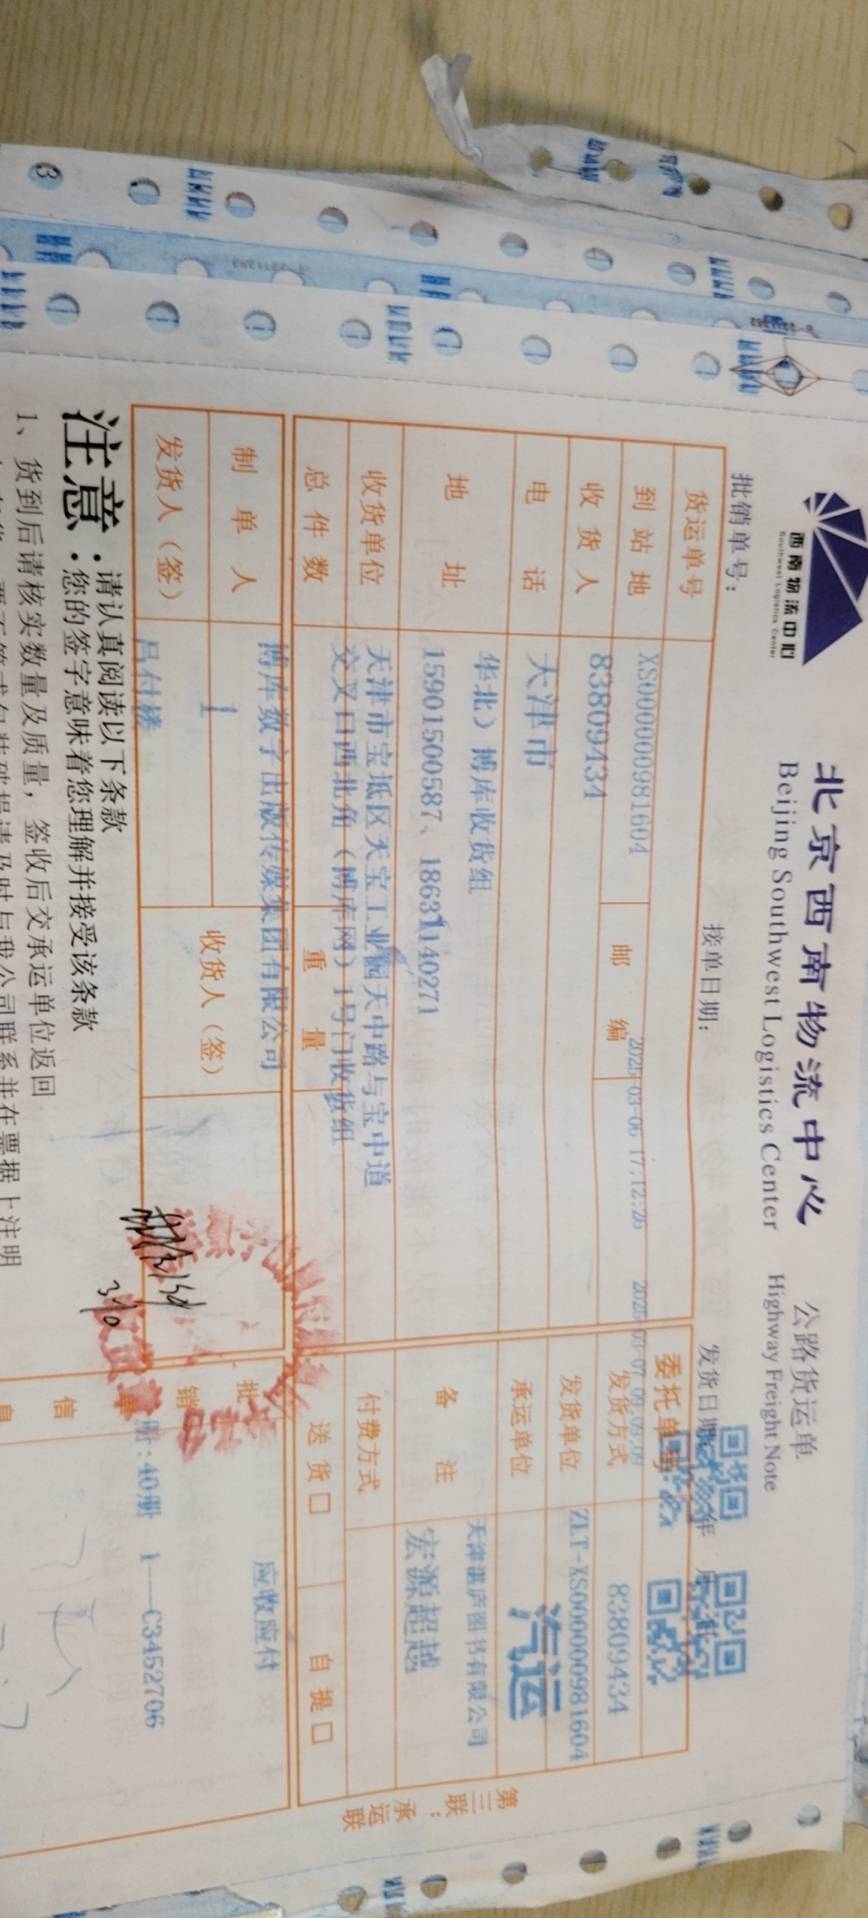 西南物流中心
Southwest Logistics Center
北京西南物流中心
公路货运单
Beijing Southwest Logistics Center
Highway Freight Note
批销单号：
接单日期：
发货日期
年 月
2025-03-06 17:12:26
2025-03-07 09:09:09
货运单号
XS000000981604
委托单号
83809434
到站地
83809434
邮 编
发货方式
ZLT-XS000000981604
收货人
天津市
发货单位
汽运
电 话
华北）博库收货组
承运单位
天津湛庐图书有限公司
地 址
15901500587、18631140271
备 注
宏源超越
收货单位
天津市宝坻区天宝工业园天中路与宝中道
交叉口西北角（博库网）1号门收货组
付费方式
总件数
重 量
送货□
自提□
博库数字出版传媒集团有限公司
应收应付
制单人
1
收货人（签）
批
销
单
发货人（签）
吕付楼
册:40册 1—C3452706
信
息
3/10
第三联：承运联
注意：
请认真阅读以下条款
您的签字意味着您理解并接受该条款
1、货到后请核实数量及质量，签收后交承运单位返回